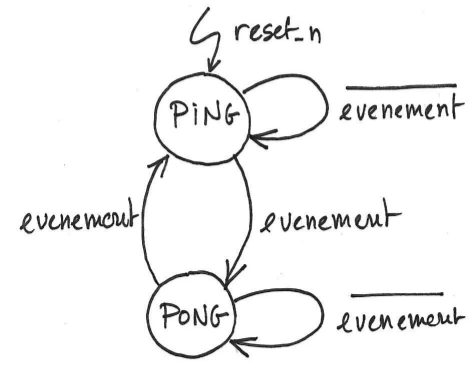 reset_n
PiNG
evenement
evenement
evenement
PONG
evenement